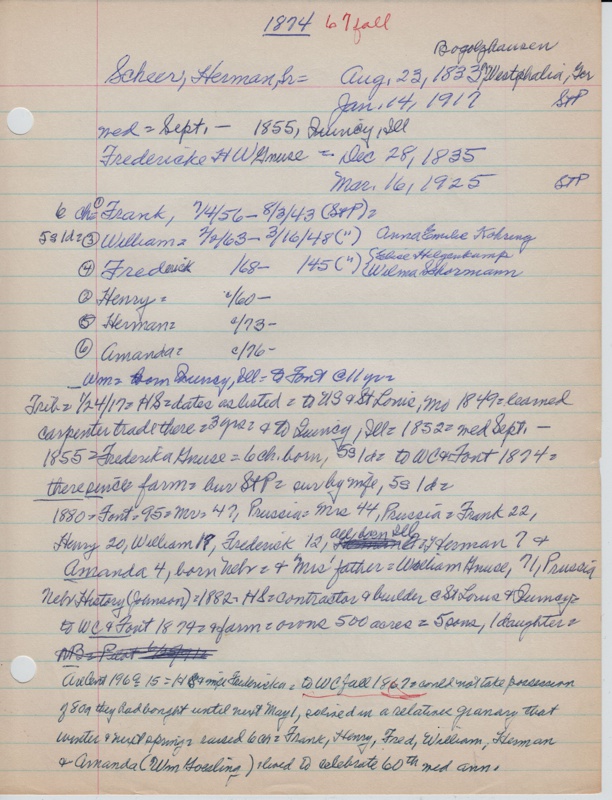 1874 67 fall
Bogolzhausen
Scheer, Herman, Sr = Aug. 23, 1833, Westphalia, Ger
Jan. 14, 1917 StP
med = Sept. - 1855, Quincy, Ill
Fredericke H W Gnuse = Dec 28, 1835
Mar. 16, 1925 StP
6 ch = ① Frank, 7/4/56 - 8/3/43 (StP) =
5s 1d = ③ William = 2/2/63 - 3/16/48 (") Anna Emilie Kohring
④ Frederick /68 - /45 (") Elise Helgenkamp
Wilma Schormann
② Henry = c/60 -
⑤ Herman = c/73 -
⑥ Amanda = c/76 -
Wm = born Quincy, Ill = to Font @ 11 yr =
Trib = 1/24/17 = HS = dates as listed = to US & St Louis, Mo 1849 = learned
carpenter trade there = 3 yrs = & to Quincy, Ill = 1852 = med Sept. -
1855 = Frederika Gnuse = 6 ch. born, 5s 1d = to WC & Font 1874 =
there since farm = bur StP = sur by wife, 5s 1d =
1880 = Font = 95 = Mr = 47, Prussia = Mrs 44, Prussia = Frank 22,
Henry 20, William 17, Frederick 12, all born Ill = Herman 7 &
Amanda 4, born Nebr = & Mrs' father = William Gnuse, 71, Prussia
Nebr History (Johnson) = 1882 = HS = contractor & builder @ St Louis & Quincy =
to WC & Font 1874 = & farm = owns 500 acres = 5 sons, 1 daughter =
NB = Past
Cent 1969 15 = HS & wife Fredericka = to WC fall 1867 = could not take possession
of 80a they had bought until next May 1, so lived in a relatives granary that
winter & next spring = raised 6 ch = Frank, Henry, Fred, William, Herman
& Amanda (Wm Goesling) = lived to celebrate 60th wed ann.